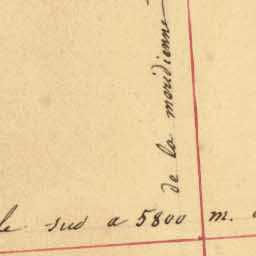 de la meridienne
le sud a 5800 m.